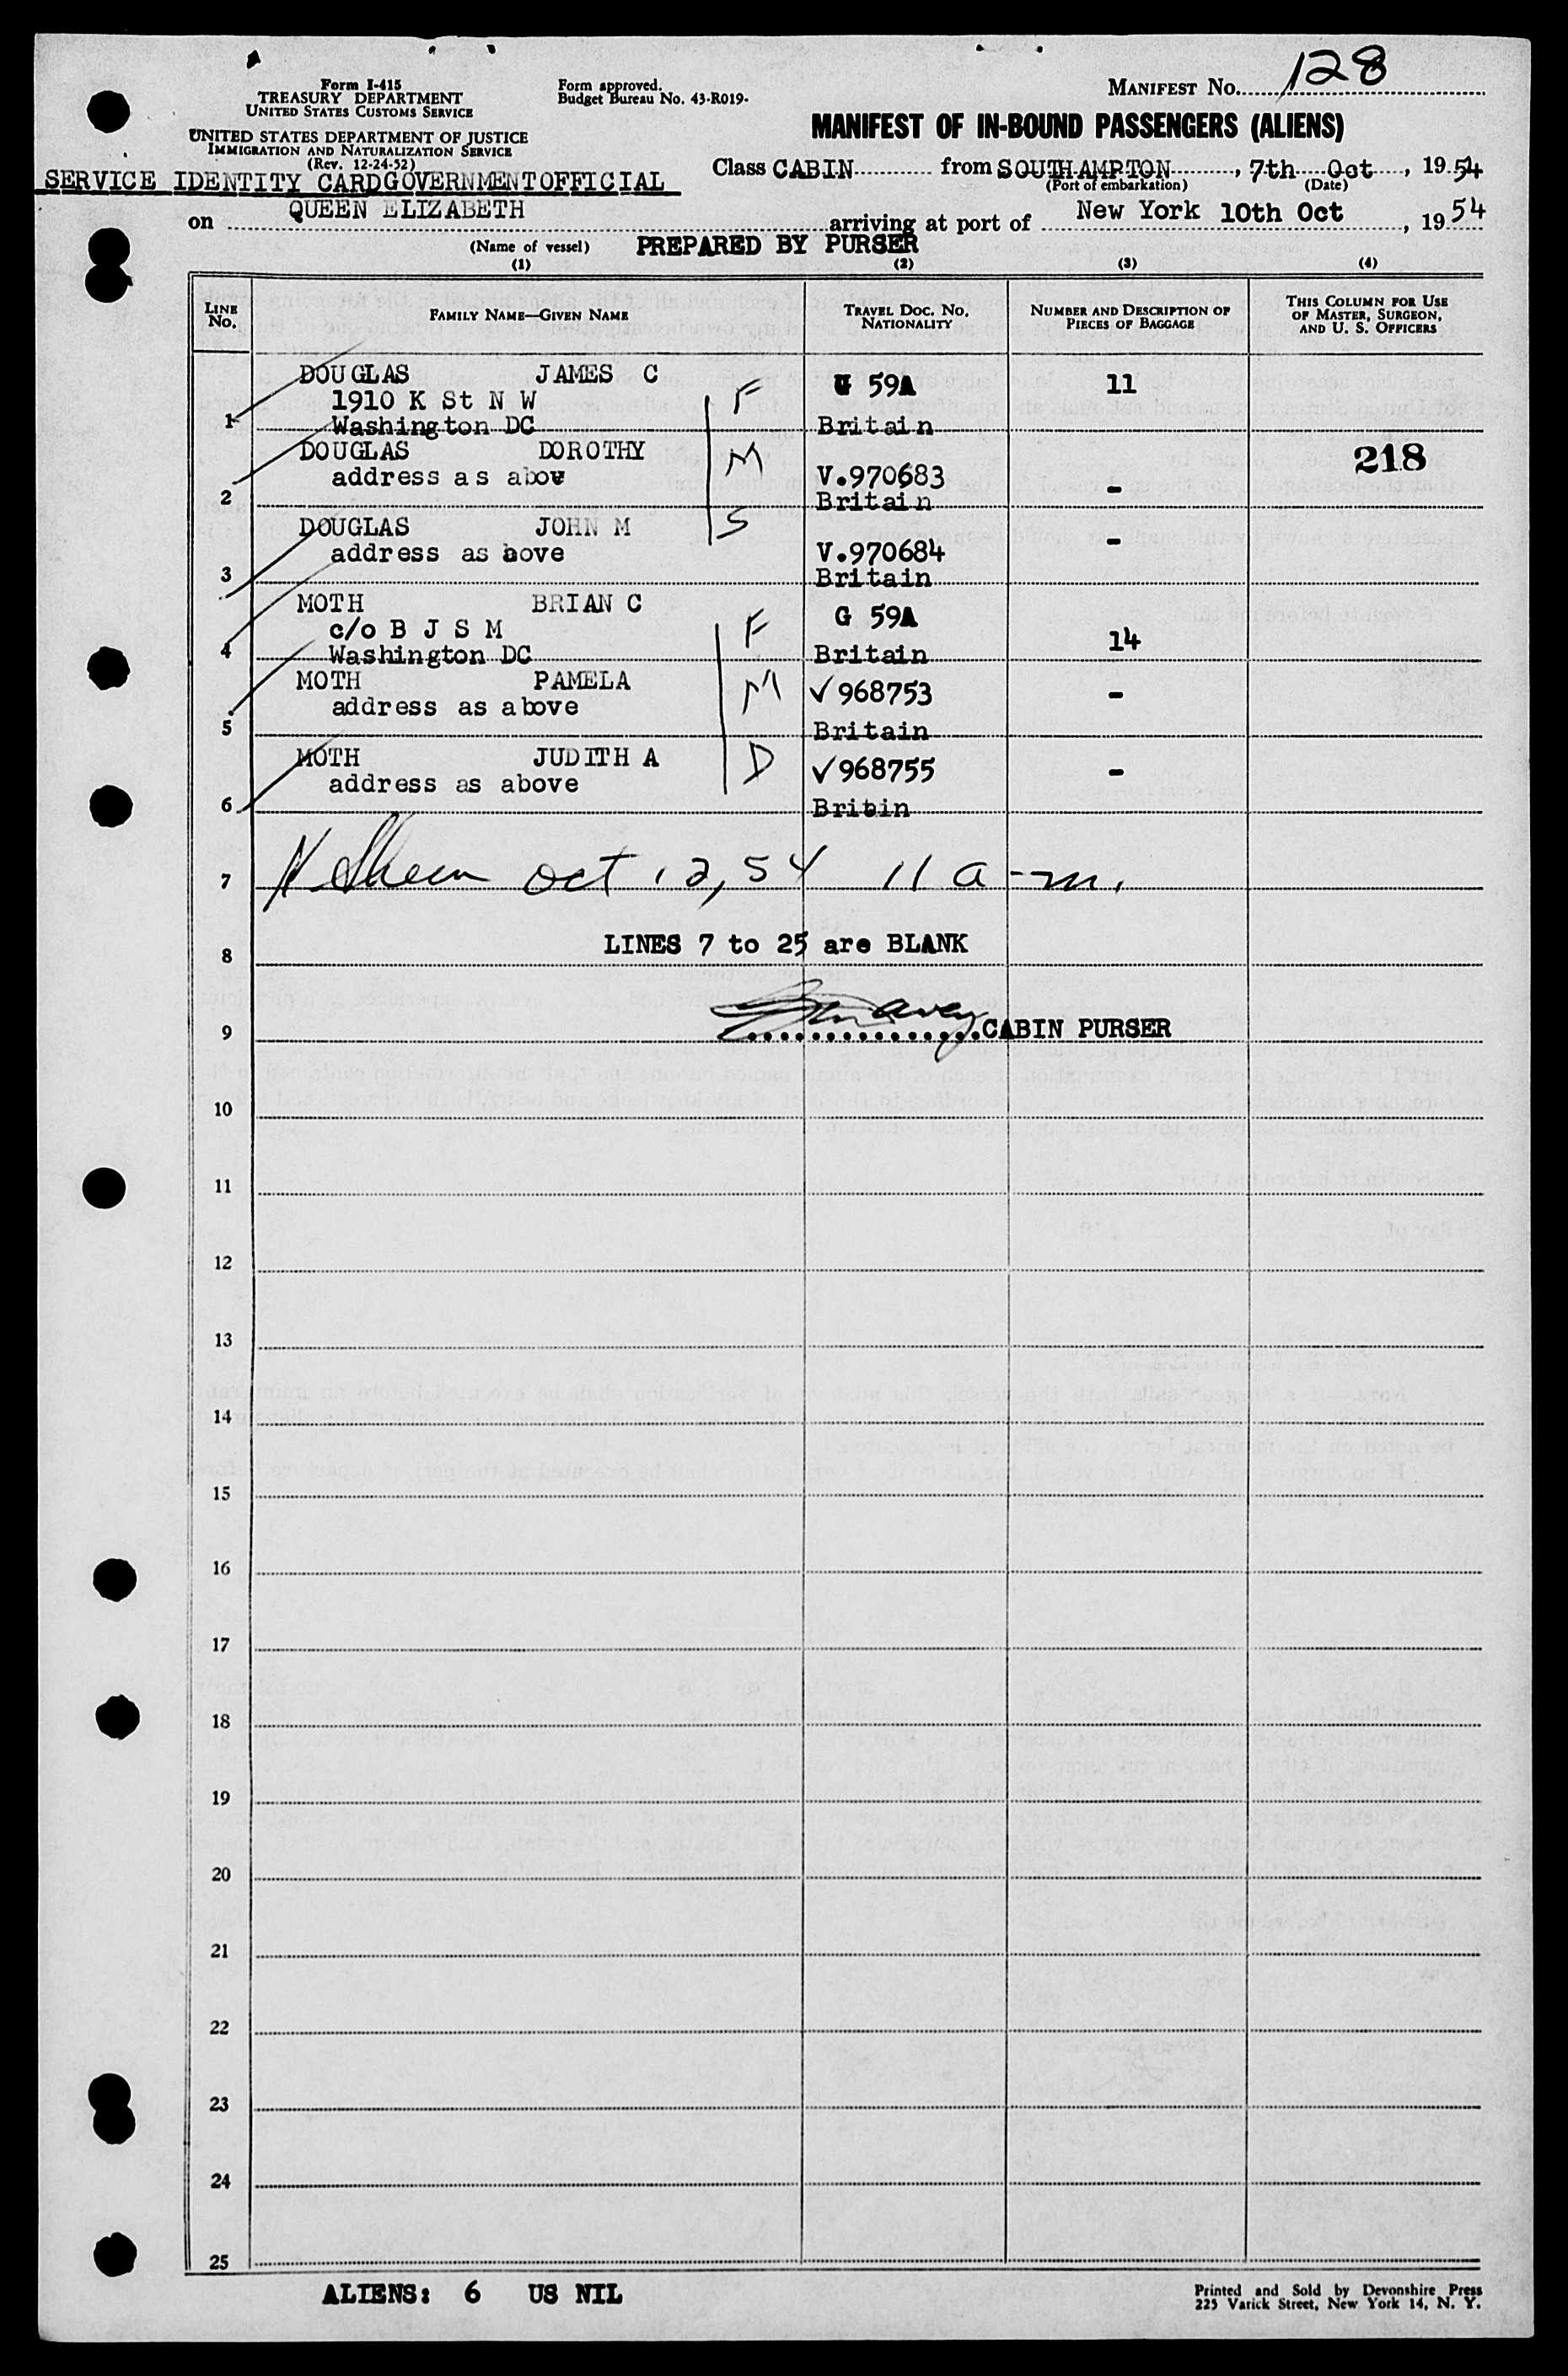 Form I-415
TREASURY DEPARTMENT
UNITED STATES CUSTOMS SERVICE
UNITED STATES DEPARTMENT OF JUSTICE
IMMIGRATION AND NATURALIZATION SERVICE
(Rev. 12-24-52)
SERVICE IDENTITY CARDGOVERNMENTOFFICIAL
Form approved.
Budget Bureau No. 43-R019-
MANIFEST No. 128
MANIFEST OF IN-BOUND PASSENGERS (ALIENS)
Class CABIN from SOUTHAMPTON, 7th Oct, 1954
(Port of embarkation) (Date)
on QUEEN ELIZABETH arriving at port of New York 10th Oct, 1954
(Name of vessel) PREPARED BY PURSER
(1) (2) (3) (4)
LINE No. FAMILY NAME—GIVEN NAME TRAVEL DOC. NO. NATIONALITY NUMBER AND DESCRIPTION OF PIECES OF BAGGAGE THIS COLUMN FOR USE OF MASTER, SURGEON, AND U. S. OFFICERS
DOUGLAS JAMES C F G 59A 11
1910 K St N W
1 Washington DC Britain
DOUGLAS DOROTHY M 218
address as abov V.970683 -
2 Britain
DOUGLAS JOHN M S -
address as aove V.970684
3 Britain
MOTH BRIAN C F G 59A
c/o B J S M 14
4 Washington DC Britain
MOTH PAMELA M ✓968753 -
address as above
5 Britain
MOTH JUDITH A D ✓968755 -
address as above
6 Britin
7 Oct 12, 54 11 a-m.
LINES 7 to 25 are BLANK
8
9 CABIN PURSER
10
11
12
13
14
15
16
17
18
19
20
21
22
23
24
25
ALIENS: 6 US NIL
Printed and Sold by Devonshire Press
225 Varick Street, New York 14, N. Y.